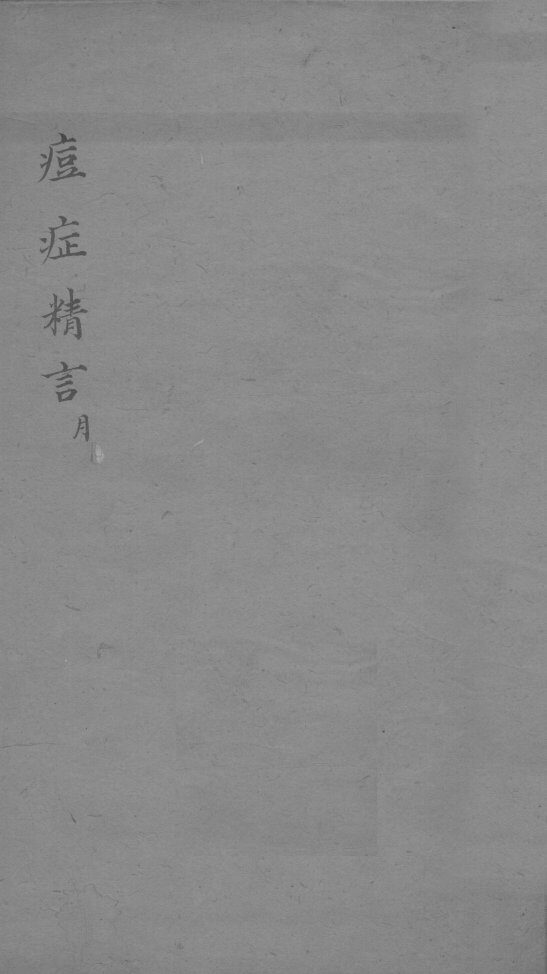 痘症精言
月